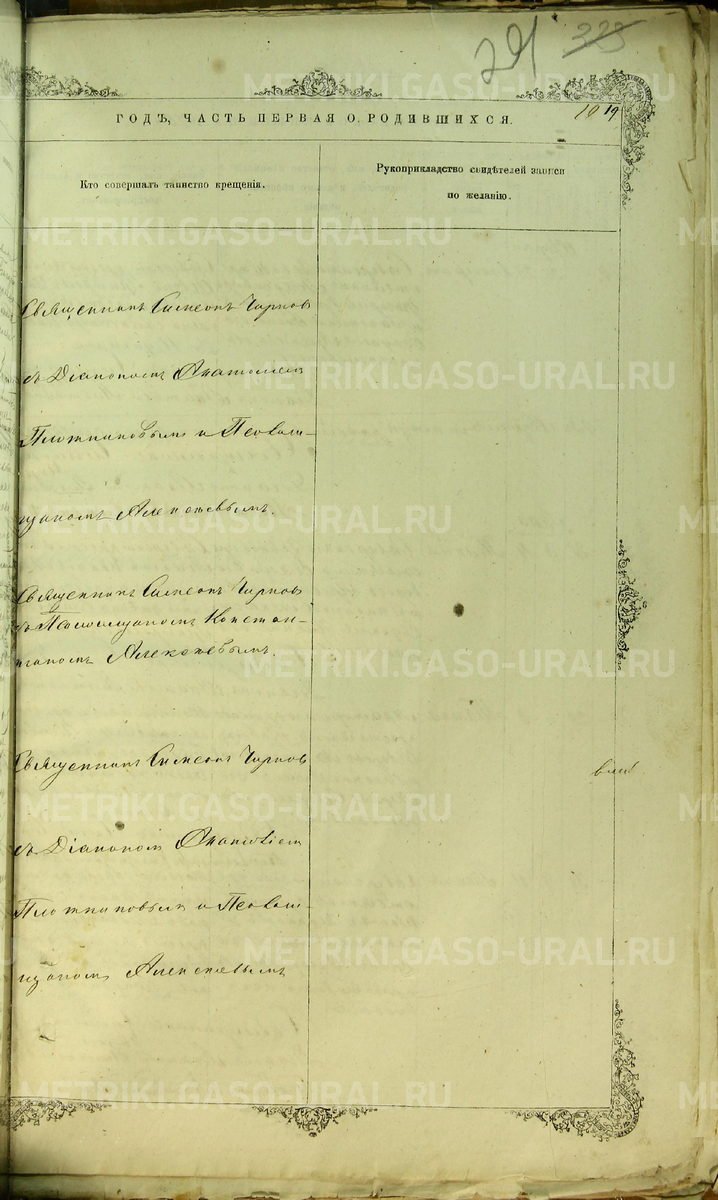 291 323
ГОДЪ, ЧАСТЬ ПЕРВАЯ О РОДИВШИХСЯ.
10 19
Кто совершалъ таинство крещенія.
Рукоприкладство свидѣтелей записи
по желанію.
Священникъ Симеонъ Чирковъ
съ Діакономъ
Плотниковымъ и Псалом-
щикомъ Алексѣевымъ.
Священникъ Симеонъ Чирковъ
съ Псаломщикомъ Констан-
тиномъ Алексѣевымъ.
Священникъ Симеонъ Чирковъ
съ Діакономъ
Плотниковымъ и Псалом-
щикомъ Алексѣевымъ
METRIKI.GASO-URAL.RU